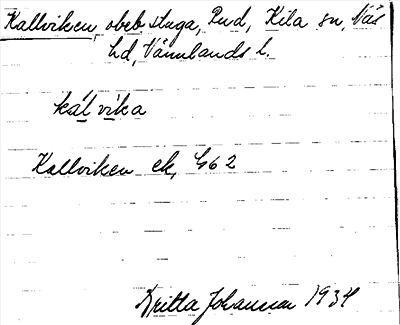 Kallviken, obeb. stuga, Rud, Kila sn, Näs
hd, Värmlands l.
kál vika
Kallviken ek, G62
Britta Johansson 1934